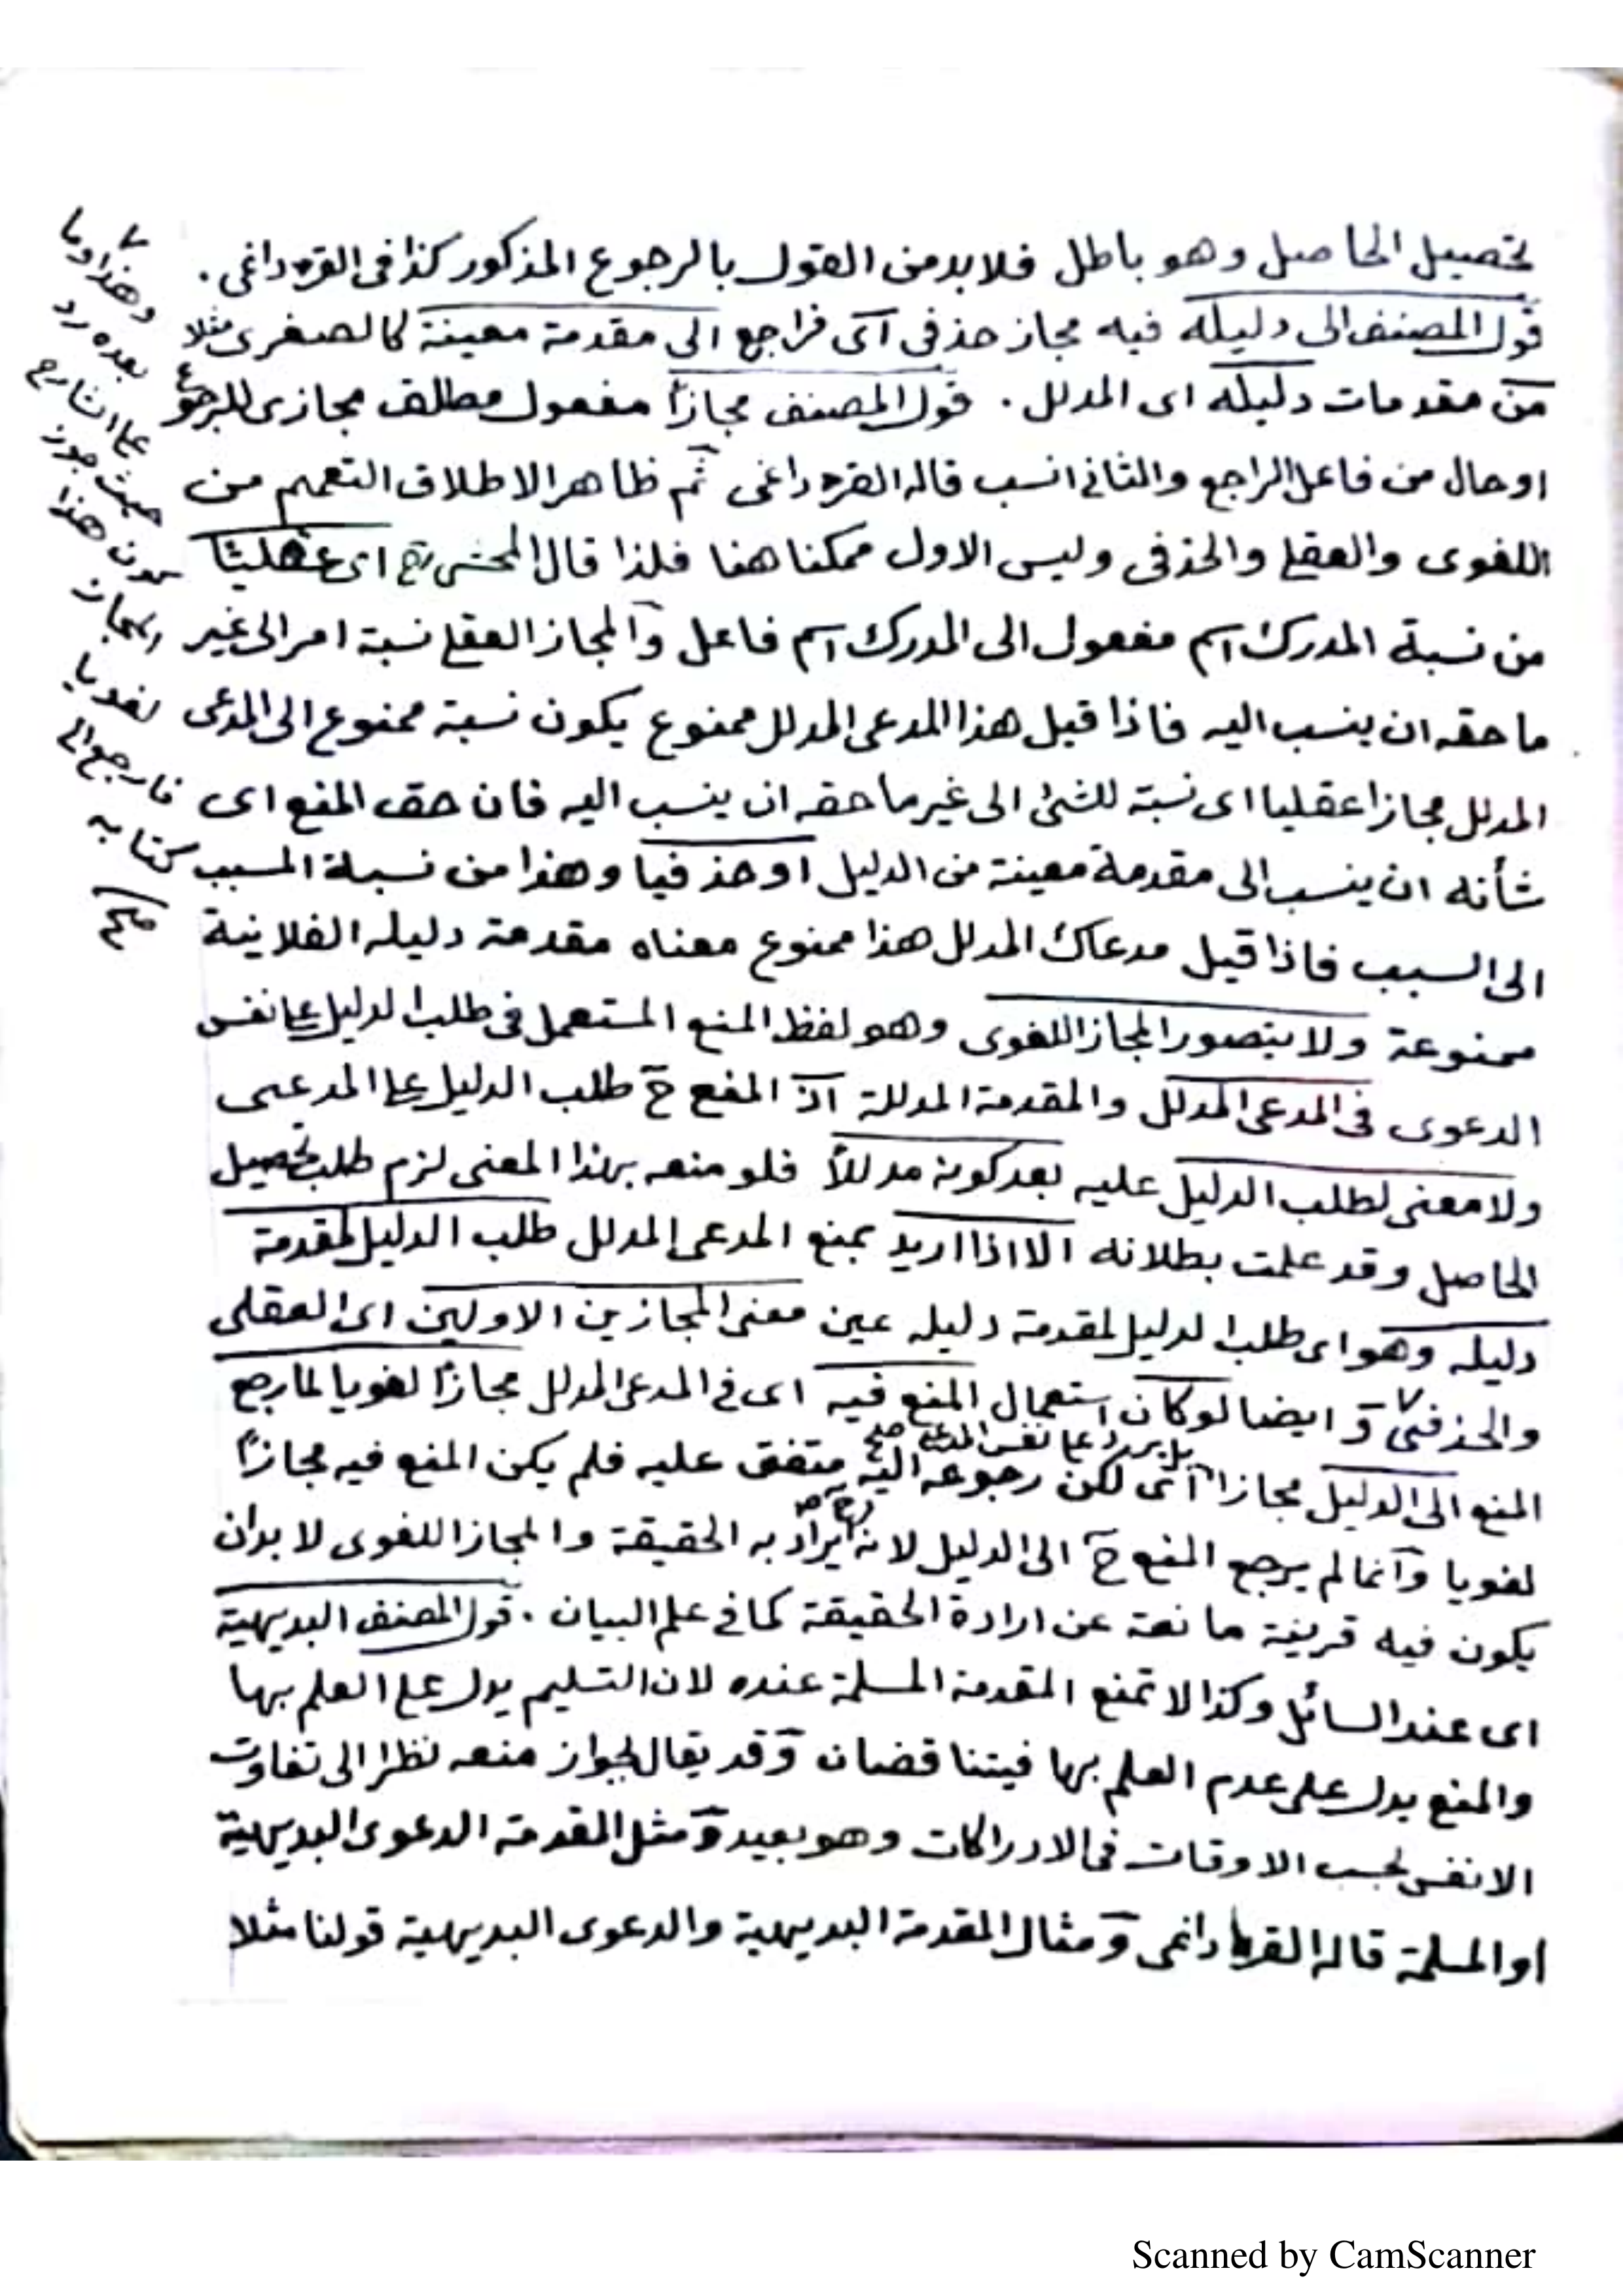 تحصيل الحاصل وهو باطل فلا بد من القول بالرجوع المذكور كذا فى القره داغى .
قول المصنف الى دليله فيه مجاز حذفى اى فراجع الى مقدمة معينة كالصغرى مثلا
من مقدمات دليله اى المدلل . قول المصنف مجازاً مفعول مطلق مجازى للرجوع
او حال من فاعل الراجع والثانى انسب قاله القره داغى ثم ظاهر الاطلاق التعميم من
اللغوى والعقلى والحذفى وليس الاول ممكنا هنا فلذا قال المحشى رح اى عقليًا
من نسبة المدرك اسم مفعول الى المدرك اسم فاعل والمجاز العقلى نسبة امر الى غير
ما حقه ان ينسب اليه فاذا قيل هذا المدعى المدلل ممنوع يكون نسبة ممنوع الى المدعى
المدلل مجازا عقليا اى نسبة للشئ الى غير ما حقه ان ينسب اليه فان حق المنع اى
شأنه ان ينسب الى مقدمة معينة من الدليل او حذفيا وهذا من نسبة المسبب
الى السبب فاذا قيل مدعاك المدلل هذا ممنوع معناه مقدمة دليله الفلانية
ممنوعة ولا يتصور المجاز اللغوى وهو لفظ المنع المستعمل فى طلب الدليل على نفس
الدعوى فى المدعى المدلل والمقدمة المدللة اذ المنع ح طلب الدليل على المدعى
ولا معنى لطلب الدليل عليه بعد كونه مدللاً فلو منعه بهذا المعنى لزم طلب تحصيل
الحاصل وقد علمت بطلانه الا اذا اريد بمنع المدعى المدلل طلب الدليل لمقدمة
دليله وهو اى طلب الدليل لمقدمة دليله عين معنى المجازين الاولين اى العقلى
والحذفى ٧ و ايضا لو كان استعمال المنع فيه اى فى المدعى المدلل مجازًا لغويا لما رجع
بل يرد على نفس المدعى صح
المنع الى الدليل مجازا اى لكن رجوعه اليه متفق عليه فلم يكن المنع فيه مجازًا
لغويا وانما لم يرجع المنع ح الى الدليل لانه يراد به الحقيقة والمجاز اللغوى لا بد ان
يكون فيه قرينة مانعة عن ارادة الحقيقة كما فى علم البيان . قول المصنف البديهية
اى عند السائل وكذا لا تمنع المقدمة المسلمة عنده لان التسليم يدل على العلم بها
والمنع يدل على عدم العلم بها فيتناقضان وقد يقال لجواز منعه نظرا الى تفاوت
الانفس بحسب الاوقات فى الادراكات وهو بعيد ومثل المقدمة الدعوى البديهية
او المسلمة قاله القره داغى ومثال المقدمة البديهية والدعوى البديهية قولنا مثلا
٧
وهذا وما
بعده رد
على الشارح
حيث جوز
كون هذا
المجاز
لغويا
فارجع الى
كتابه
Scanned by CamScanner